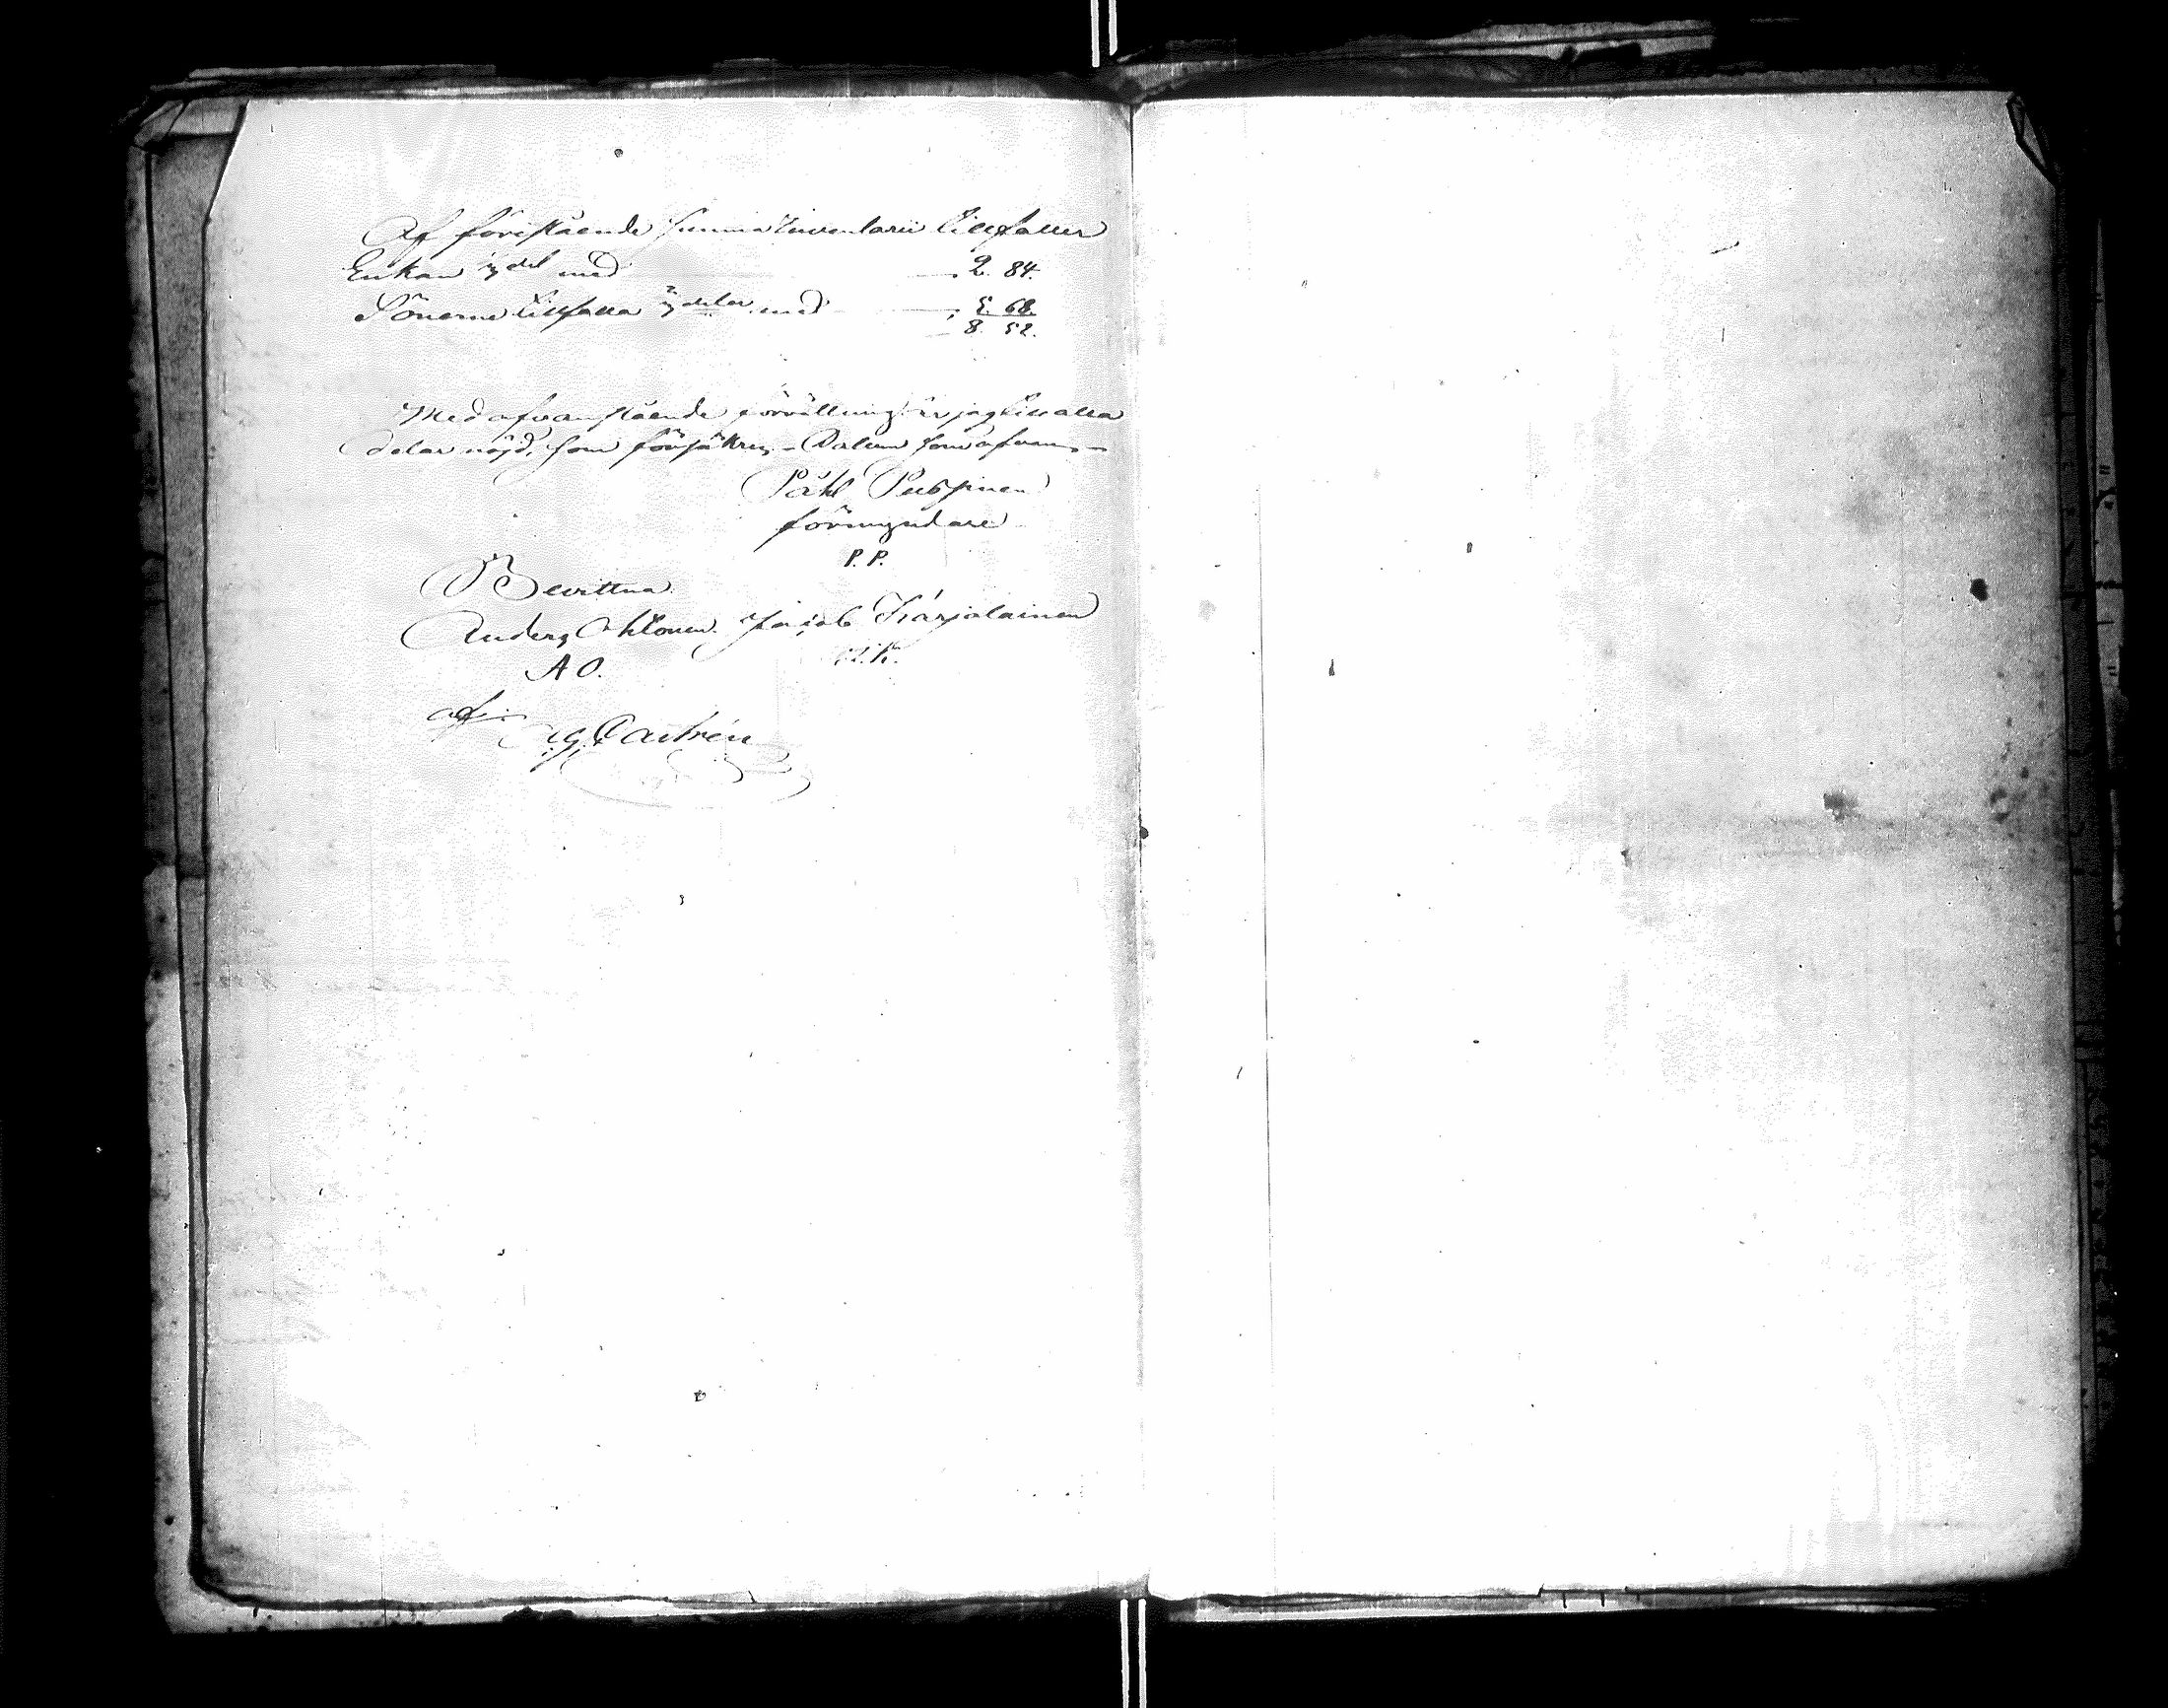 Af förestående Summa Inventarii tillfaller
Enkan 1/3 del med 2. 84.
Sönerne tillfalla 2/3 delar med 5. 68.
8. 52.
Med ofvanstående förrättning är jag till alla
delar nöjd, som försäkras. Datum som ofvan.
Påhl
förmyndare
P. P.
Bevittna
Anders Ahtonen. Jacob Karjalainen
A O. K.
af
Castrén